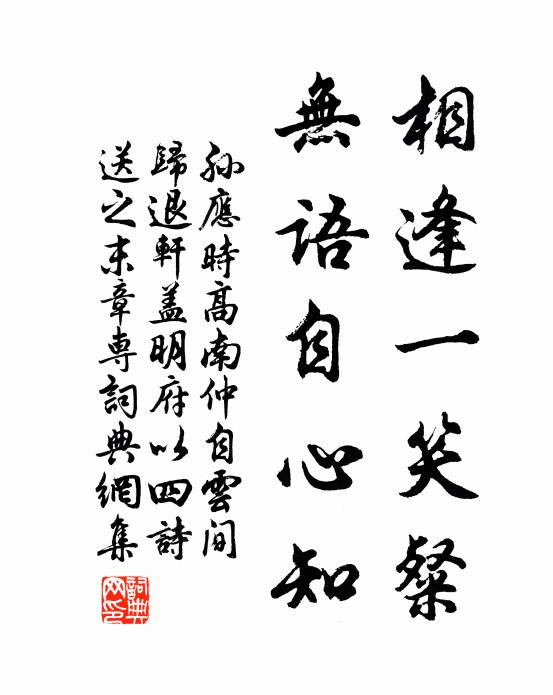 相逢一笑粲
無語自心知
孫應時高南仲自雲间
歸退軒盖明府以四詩
送之末章専詞典網集
詞典網印